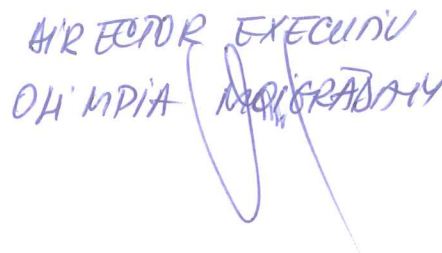 DIRECTOR EXECUTIV
OLIMPIA MOIGRĂDAN